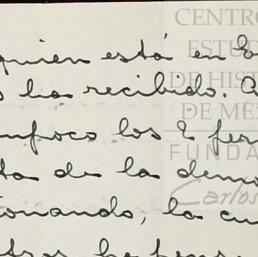 quien está en E
s ha recibido. A
ampoco los 2 fer
ta de la demo
ionando, la cu
CENTRO
ESTU
DE HIST
DE MÉ
FUNDA
Carlos